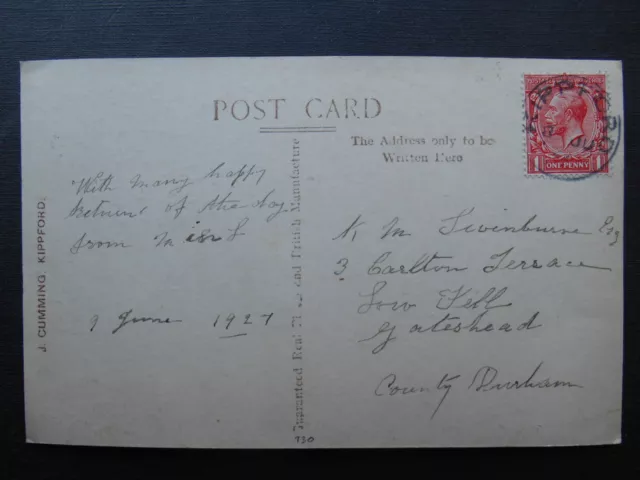 POST CARD
The Address only to be
Written Here
With many happy
Returns of the day
from
9 June 1927
K M Swinburne Esq
3 Carlton Terrace
Low Fell
Gateshead
County Durham
J. CUMMING KIPPFORD.
Guaranteed Real and British Manufacture
KIPPFORD
JU
ONE PENNY
1
1
730